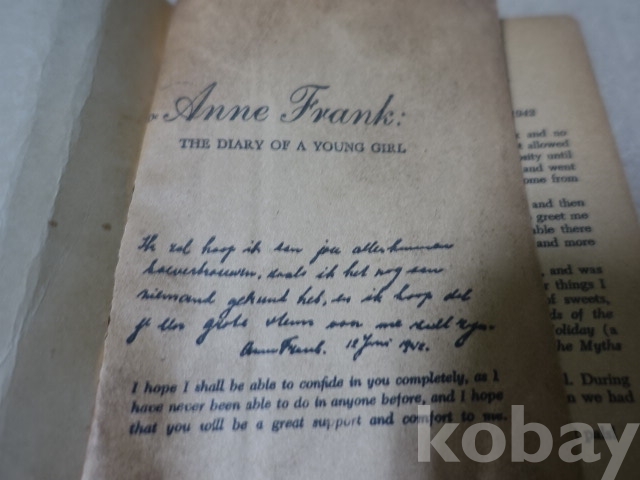 Anne Frank:
THE DIARY OF A YOUNG GIRL
Ik zal hoop ik aan jou alles kunnen
toevertrouwen, zoals ik het nog aan
niemand gekund heb, en ik hoop dat
je een grote steun voor me zult zijn.
Anne Frank. 12 Juni 1942.
I hope I shall be able to confide in you completely, as I
have never been able to do in anyone before, and I hope
that you will be a great support and comfort to me.
1942
and no
allowed
until
and went
from
and then
greet me
there
and more
, and was
things I
sweets,
of the
(a
Myths
During
we had
kobay